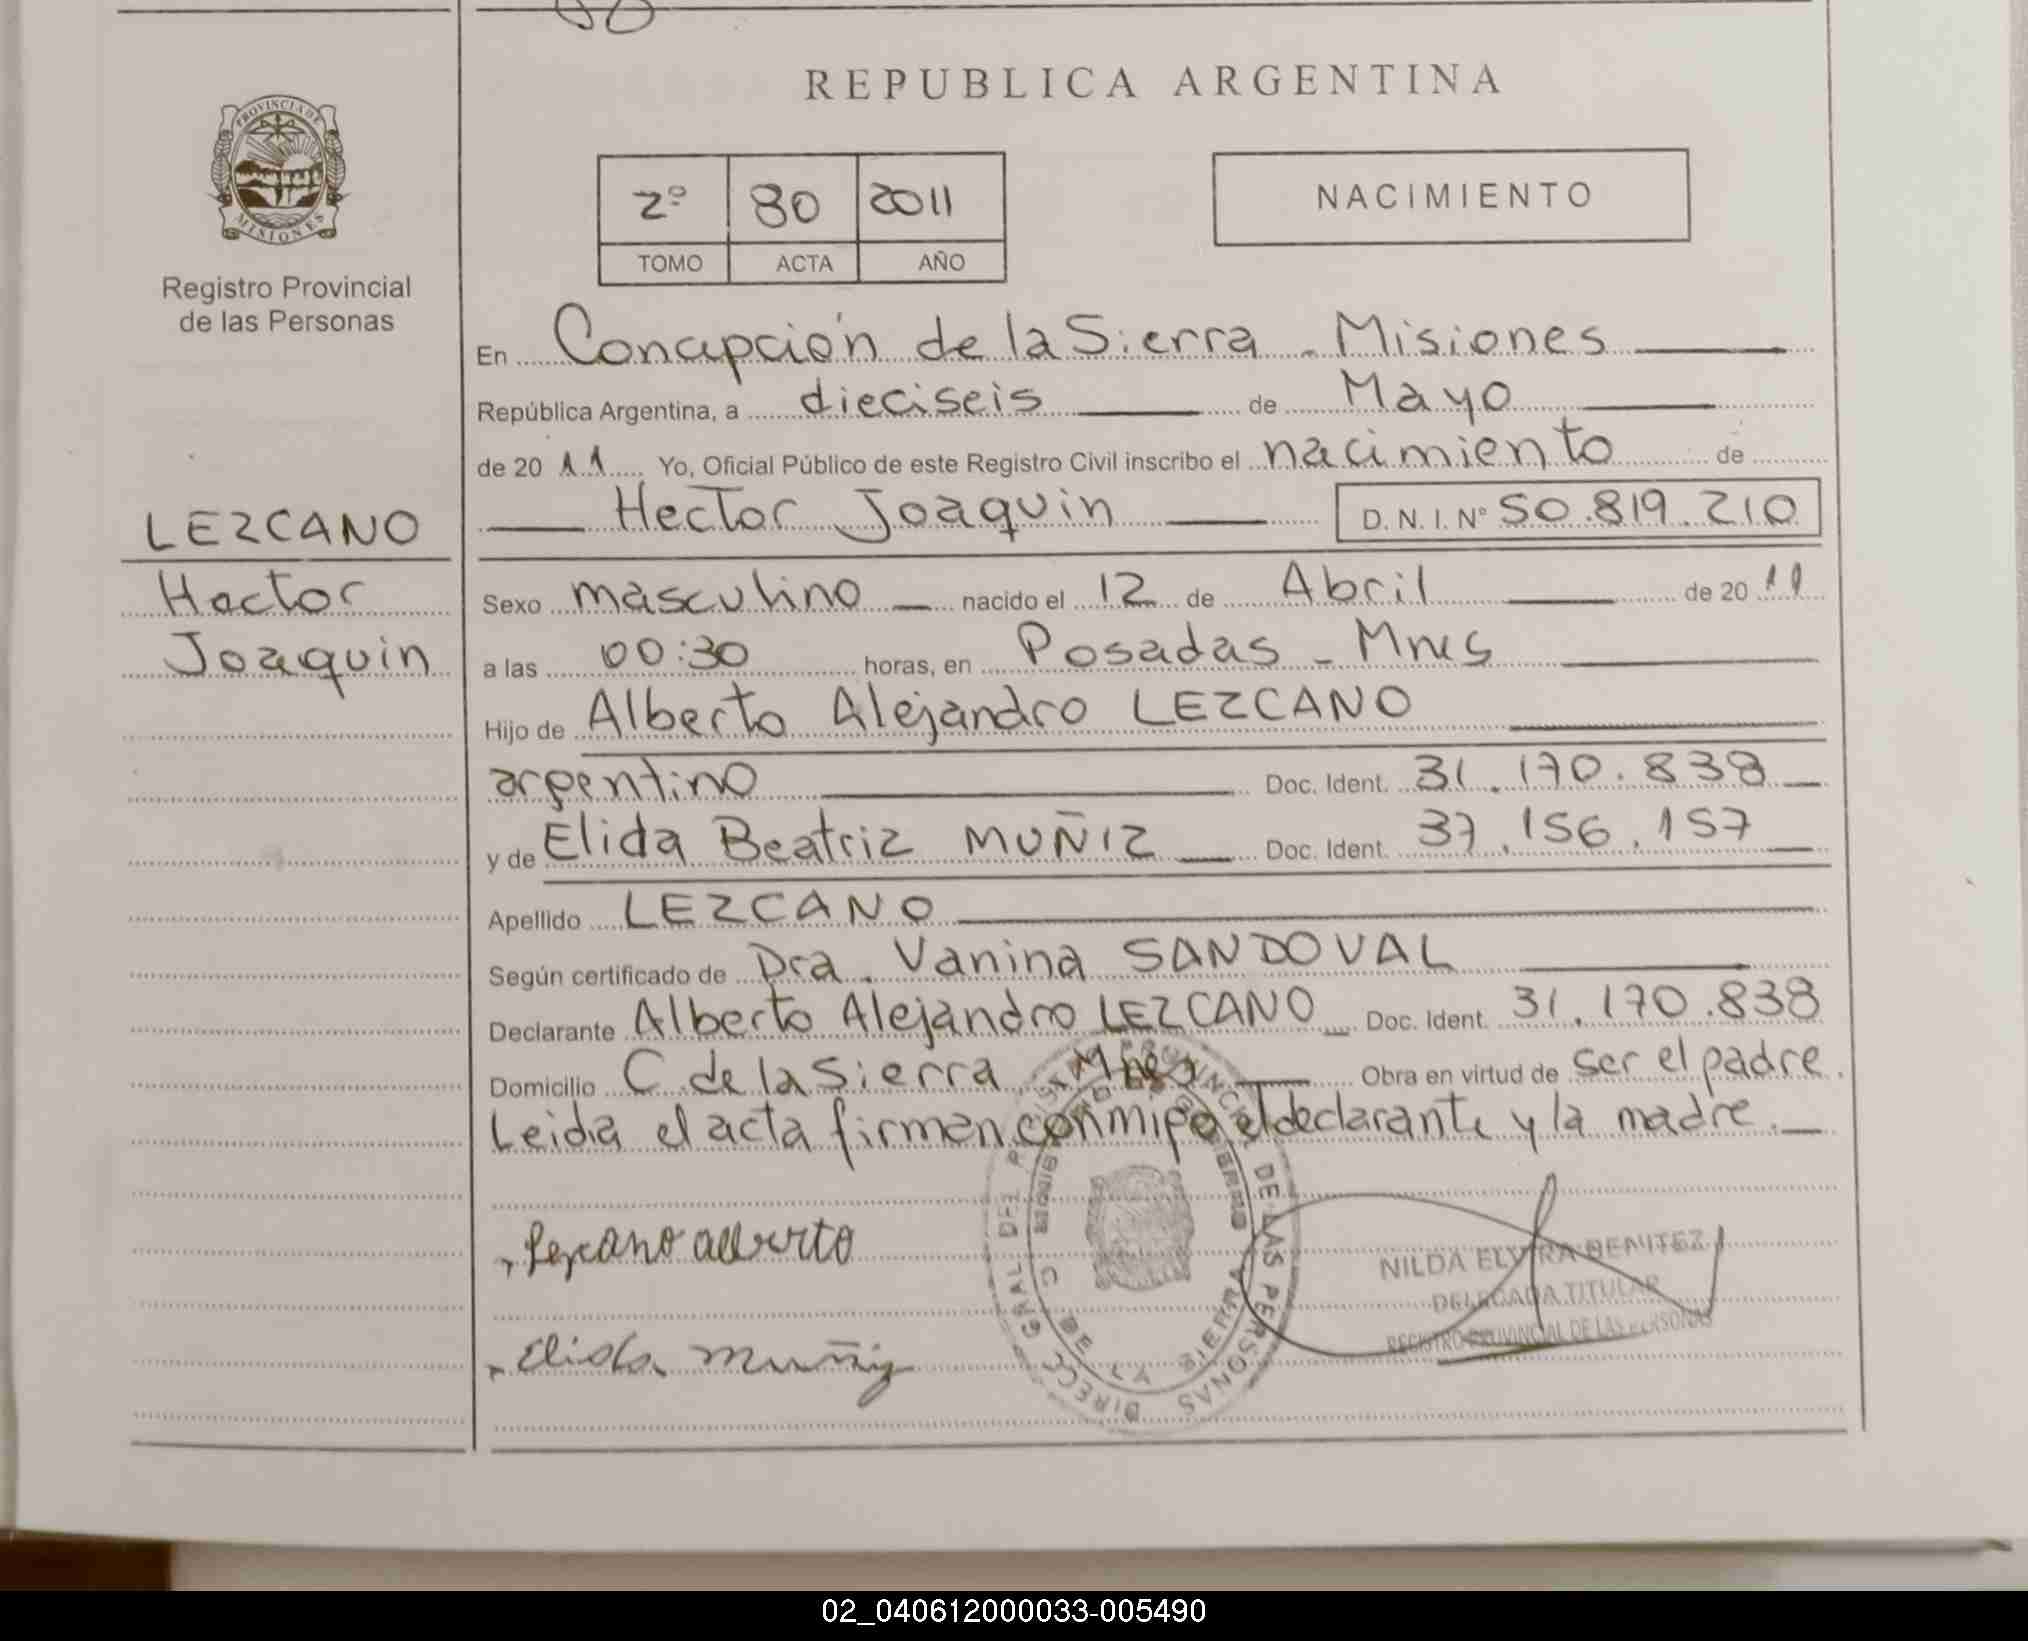 REPUBLICA ARGENTINA
PROVINCIA DE
MISIONES
Registro Provincial
de las Personas
2º 80 2011
TOMO ACTA AÑO
NACIMIENTO
En Concepción de la Sierra - Misiones
República Argentina, a dieciseis de Mayo
de 20 11 Yo, Oficial Público de este Registro Civil inscribo el nacimiento de
Hector Joaquin D. N. I. Nº 50.819.210
LEZCANO
Hector
Joaquin
Sexo masculino nacido el 12 de Abril de 20 11
a las 00:30 horas, en Posadas - Mnes
Hijo de Alberto Alejandro LEZCANO
argentino Doc. Ident. 31.170.838
y de Elida Beatriz MUÑIZ Doc. Ident. 37.156.157
Apellido LEZCANO
Según certificado de Dra. Vanina SANDOVAL
Declarante Alberto Alejandro LEZCANO Doc. Ident. 31.170.838
Domicilio C. de la Sierra Mnes Obra en virtud de ser el padre.
Leida el acta firman conmigo el declarante y la madre.
Lezcano alberto
Elida muñiz
DIREC. GRAL DEL REGISTRO PROVINCIAL DE LAS PERSONAS
C DE LA SIERRA
NILDA ELVIRA BENITEZ
DELEGADA TITULAR
REGISTRO PROVINCIAL DE LAS PERSONAS
02_040612000033-005490